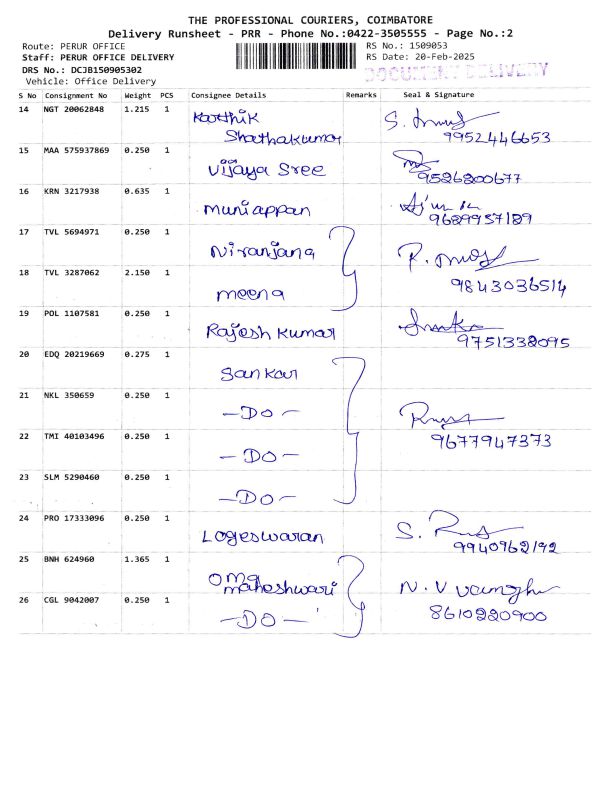 THE PROFESSIONAL COURIERS, COIMBATORE
Delivery Runsheet - PRR - Phone No.:0422-3505555 - Page No.:2
Route: PERUR OFFICE RS No.: 1509053
Staff: PERUR OFFICE DELIVERY RS Date: 20-Feb-2025
DRS No.: DCJB150905302 DOCUMENT DELIVERY
Vehicle: Office Delivery
S No Consignment No Weight PCS Consignee Details Remarks Seal & Signature
14 NGT 20062848 1.215 1 Karthik
Shathakumar 9952446653
15 MAA 575937869 0.250 1 Vijaya Sree 9526200677
16 KRN 3217938 0.635 1 Muniappan 9629957189
17 TVL 5694971 0.250 1 Niranjana
18 TVL 3287062 2.150 1 meena 9843036514
19 POL 1107581 0.250 1 Rajesh Kumar 9751338095
20 EDQ 20219669 0.275 1 Sankar
21 NKL 350659 0.250 1 -DO-
22 TMI 40103496 0.250 1 -DO- 9677947373
23 SLM 5290460 0.250 1 -DO-
24 PRO 17333096 0.250 1 Logeswaran 9940962192
25 BNH 624960 1.365 1 Oma
maheshwari
26 CGL 9042007 0.250 1 -DO- 8610220900